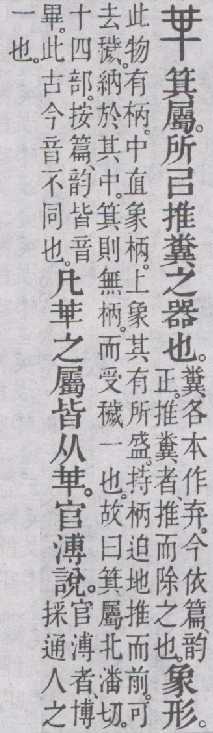 𠦒 箕屬。所㠯推糞之器也。糞各本作弃。今依篇韵正。推糞者、推而除之也。象形。
此物有柄。中直象柄。上象其有所盛。持柄迫地推而前。可
去穢。納於其中。箕則無柄。而受穢一也。故曰箕屬。北潘切。
十四部。按篇韵皆音畢。此古今音不同也。凡𠦒之屬皆从𠦒。官溥說。官溥者、博採通人之
一也。